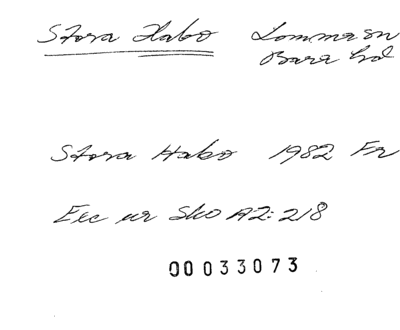 Stora Habo Lomma sn
Bara hd
Stora Habo 1982 Fr
Exc ur Sko A2:218
00033073